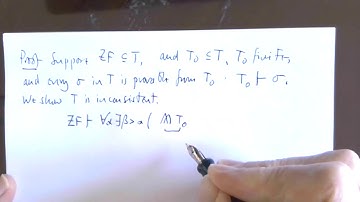 Proof Support ZF ⊆ T, and T₀ ⊆ T, T₀ finite,
and every σ in T is provable from T₀ . T₀ ⊢ σ.
We show T is inconsistent.
ZF ⊢ ∀α∃β>α ( ⋀⋀ T₀